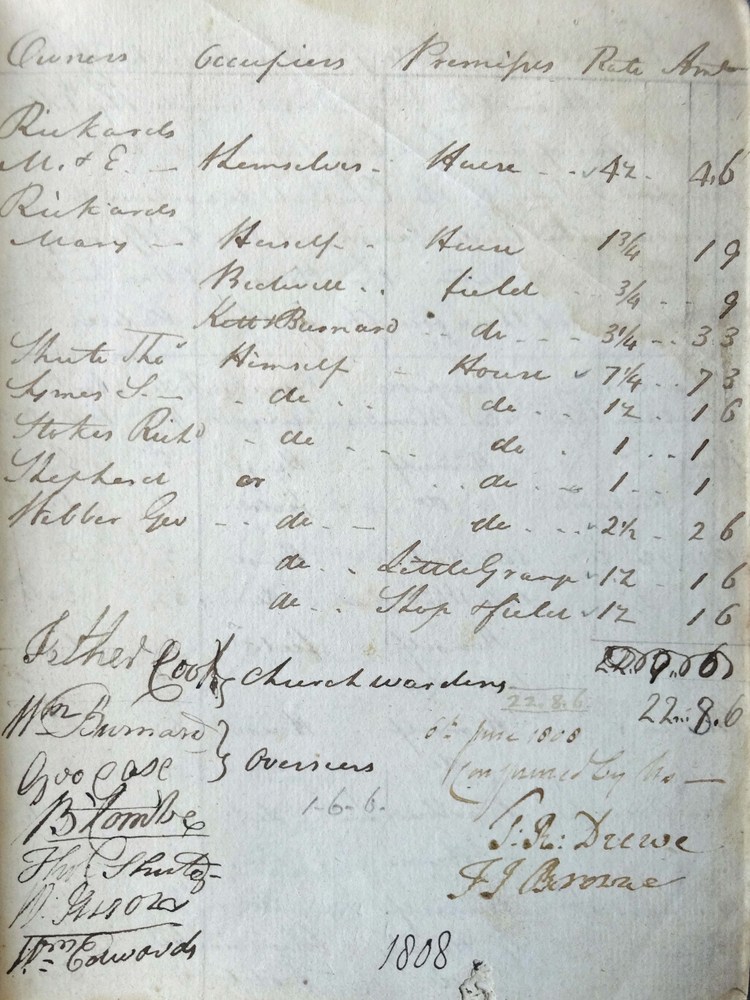 Owners Occupiers Premises Rate Amt
Rickards
M. & E. — themselves - House - - 4½ - 4,6
Rickards
Mary — Herself - House 1¾ 1 9
Bedwell . . field - - ¾ - - 9
Kett & Burnard . . do - - - 3¼ - - 3 3
Shute Thos Himself - House 7¼ . . 7 3
Symes S. — - do . . do . . 1½ . 1 6
Stokes Richd - do - . - do . 1 . . 1
Shepherd or . . do . - 1 . . 1
Webber Geo - . do - — do . . 2½ - 2 6
do . . Little Grasp 1½ - 1 6
do . . Shop & field 1½ 1 6
Esther Cook } Churchwardens
22.8.6
22.,8.6
Wm Burnard } Overseers
Geo case
6th June 1808
Confirmed by Us —
1-6-6-
T: R: Drewe
F J Browne
Thos Shute
Wm Edwards
1808